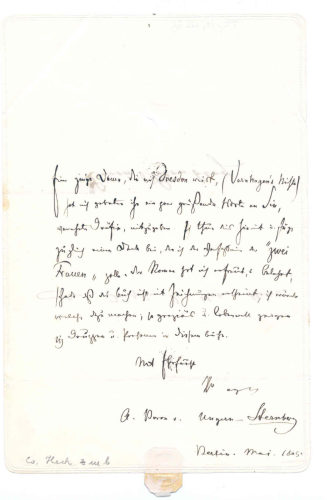 Eine junge Dame, die nach Dresden reist, (Varnhagen's Nichte)
hat mich gebeten ihr ein paar grüßende Worte an Sie,
verehrte Gräfin, mitzugeben. Ich thue dies hiermit u. füge
zugleich meinen Dank bei, den ich der Verfasserin der "zwei
Frauen" zolle. Der Roman hat mich erfreut u. belehrt,
schade daß das Buch nicht mit Zeichnungen erscheint, ich würde
welche dazu machen, so graziös u. lebensvoll
die Gruppen u. Personen in diesem Buche.
Mit Ehrfurcht
A. Baron v. Ungern-Sternberg
Berlin. Mai. 1845.